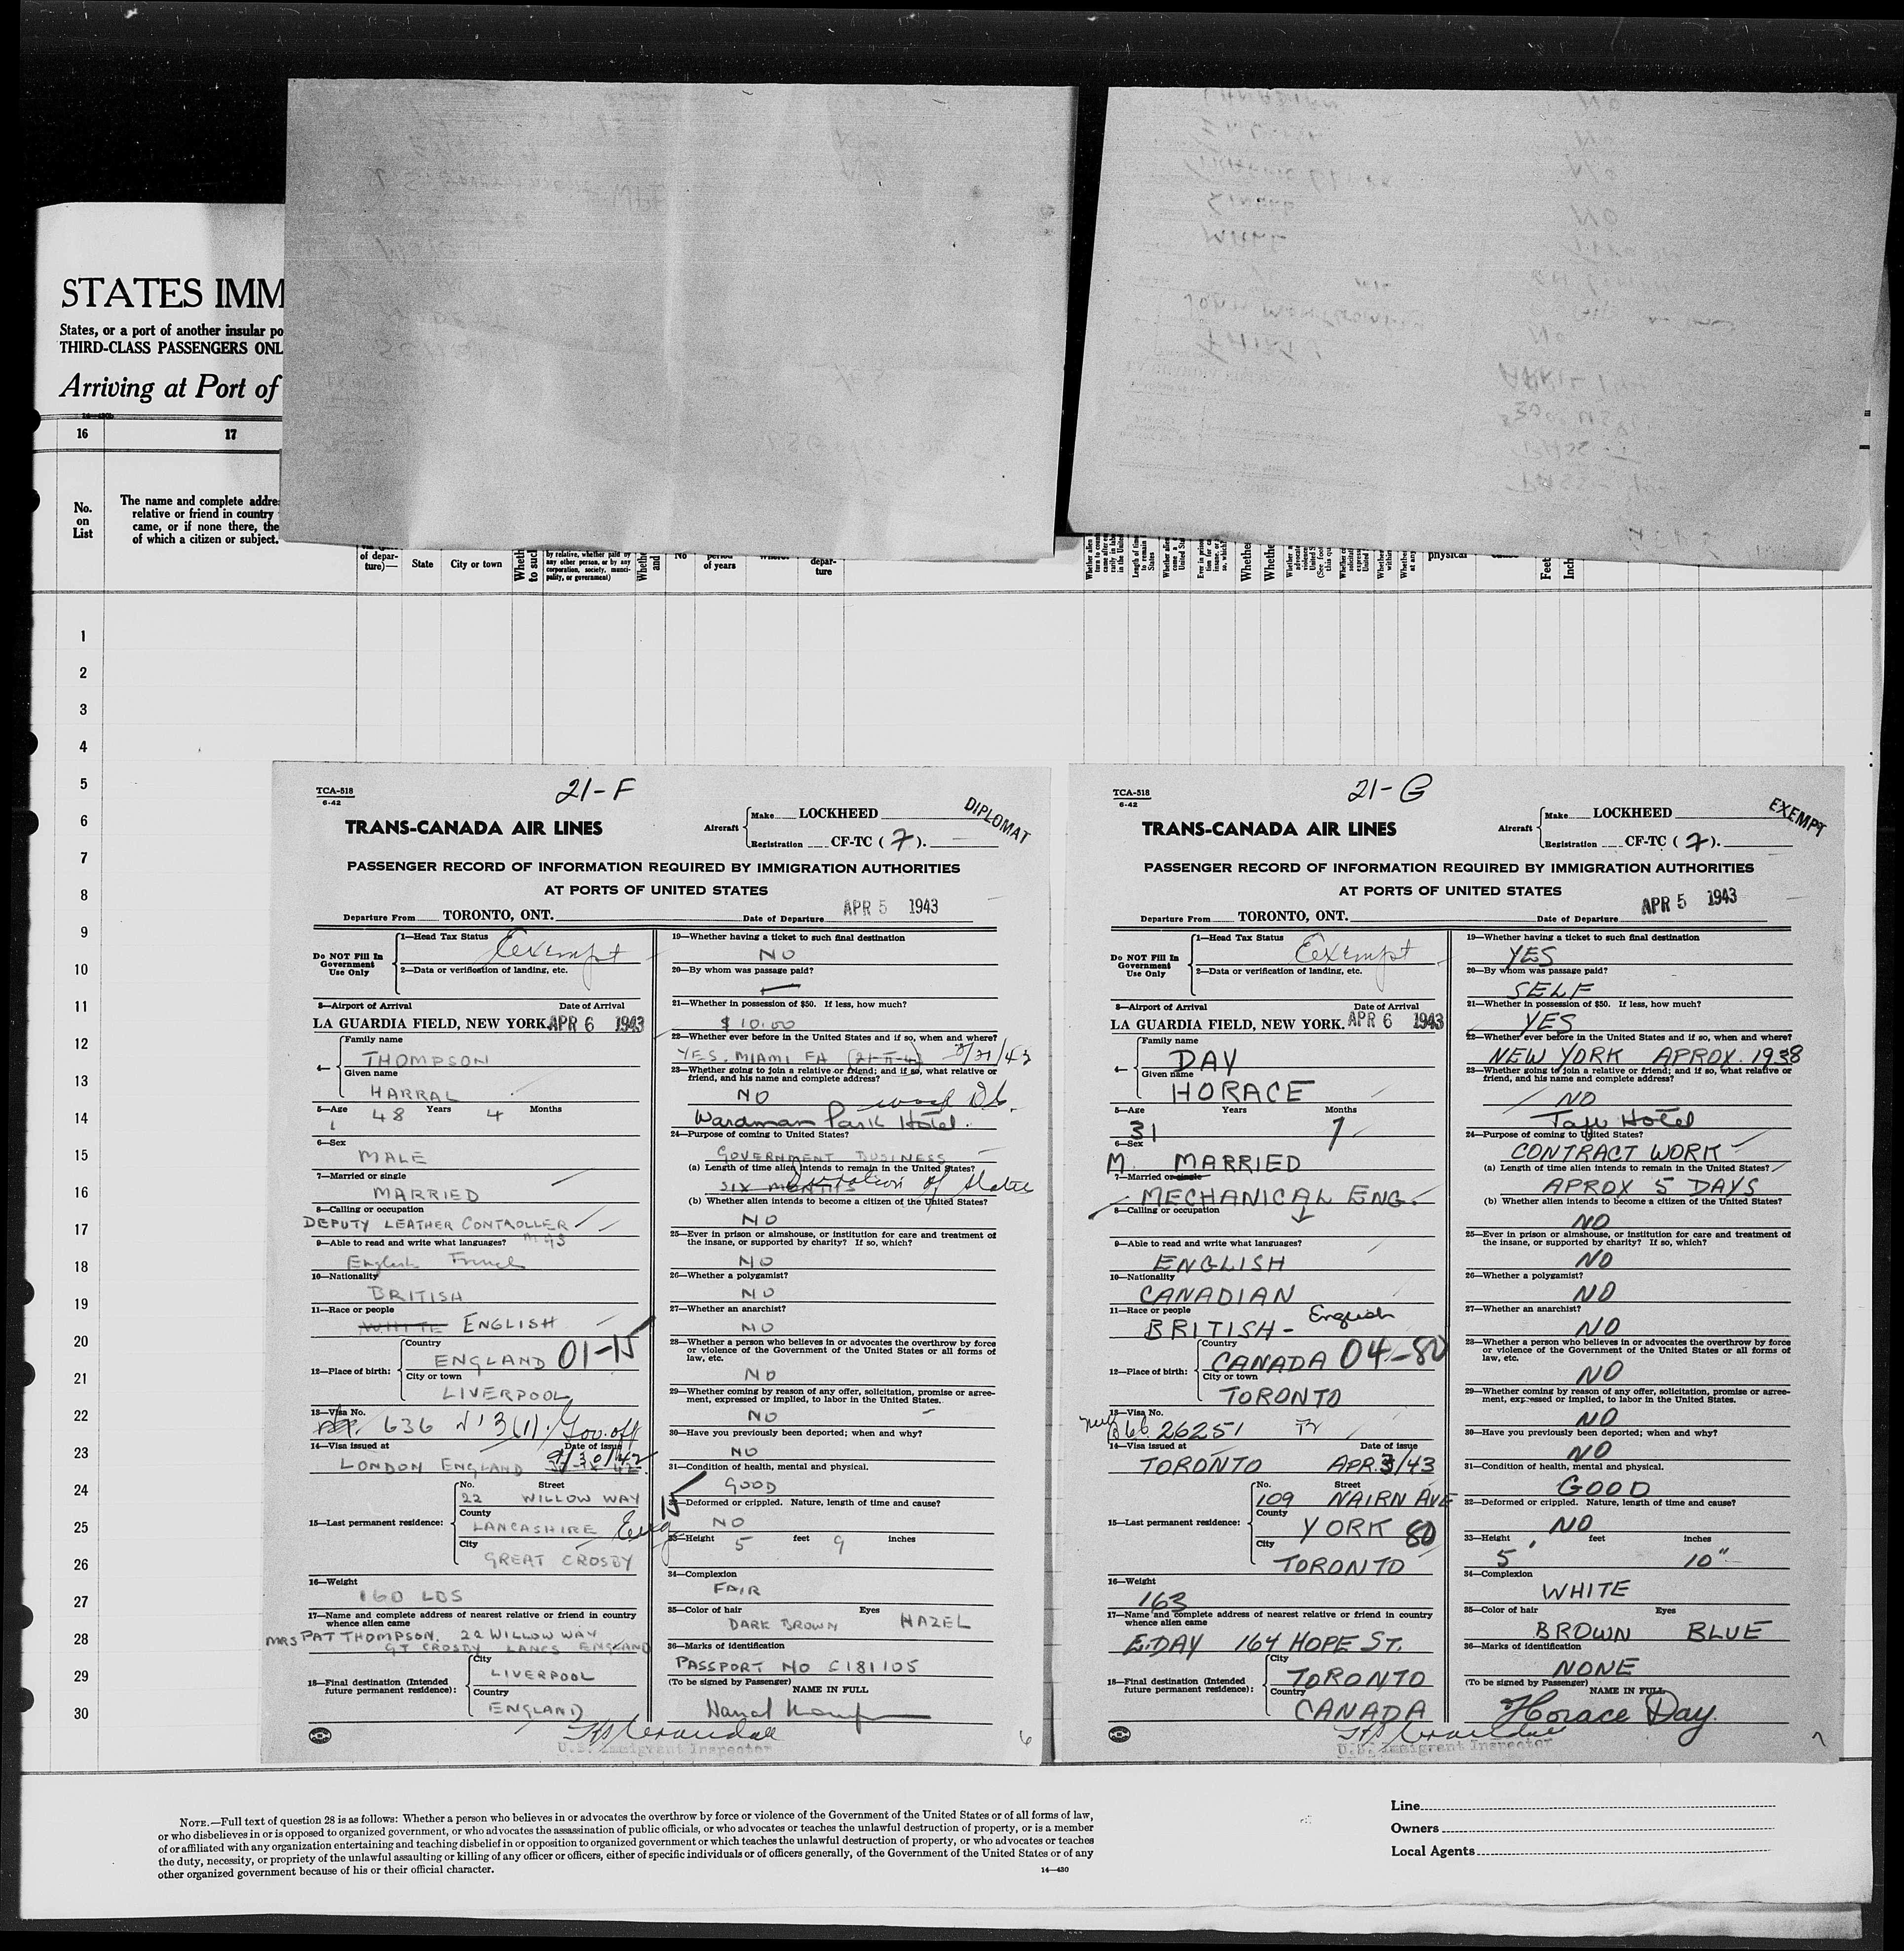 STATES IMM
States, or a port of another insular po
THIRD-CLASS PASSENGERS ONL
Arriving at Port of
16 17
No. on List
The name and complete addre
relative or friend in country
came, or if none there, the
of which a citizen or subject.
of depar-
ture)—
State
City or town
Wheth
to such
by relative, whether paid by
any other person, or by any
corporation, society, munici-
pality, or government)
Whethe
and
No
period
of years
depar-
ture
physical
Feet
Inch
1
2
3
4
5
6
7
8
9
10
11
12
13
14
15
16
17
18
19
20
21
22
23
24
25
26
27
28
29
30
TCA-518
6-42
21-F
TRANS-CANADA AIR LINES
Aircraft
Make LOCKHEED
Registration CF-TC ( 7 ).
DIPLOMAT
PASSENGER RECORD OF INFORMATION REQUIRED BY IMMIGRATION AUTHORITIES
AT PORTS OF UNITED STATES
Departure From TORONTO, ONT. Date of Departure APR 5 1943
Do NOT Fill In
Government
Use Only
1—Head Tax Status Exempt
2—Data or verification of landing, etc.
3—Airport of Arrival Date of Arrival
LA GUARDIA FIELD, NEW YORK. APR 6 1943
4—
Family name
THOMPSON
Given name
HARRAL
5—Age 48 Years 4 Months
6—Sex
MALE
7—Married or single
MARRIED
8—Calling or occupation
DEPUTY LEATHER CONTROLLER
9—Able to read and write what languages?
English French
10—Nationality
BRITISH
11—Race or people
WHITE ENGLISH
12—Place of birth:
Country
ENGLAND 01-15
City or town
LIVERPOOL
13—Visa No.
636 3(1) Gov. off
14—Visa issued at Date of issue
LONDON ENGLAND 9/30/42
15—Last permanent residence:
No. Street
22 WILLOW WAY
County
LANCASHIRE Eng
City
GREAT CROSBY
16—Weight
160 LBS
17—Name and complete address of nearest relative or friend in country
whence alien came
MRS PAT THOMPSON. 22 WILLOW WAY
GT CROSBY LANCS ENGLAND
18—Final destination (Intended
future permanent residence):
City
LIVERPOOL
Country
ENGLAND
U.S. Immigrant Inspector
19—Whether having a ticket to such final destination
NO
20—By whom was passage paid?
—
21—Whether in possession of $50. If less, how much?
$ 10.00
22—Whether ever before in the United States and if so, when and where?
YES. MIAMI FA
23—Whether going to join a relative or friend; and if so, what relative or
friend, and his name and complete address?
NO
Wardman Park Hotel.
24—Purpose of coming to United States?
GOVERNMENT BUSINESS
(a) Length of time alien intends to remain in the United States?
SIX MONTHS Duration of Status
(b) Whether alien intends to become a citizen of the United States?
NO
25—Ever in prison or almshouse, or institution for care and treatment of
the insane, or supported by charity? If so, which?
NO
26—Whether a polygamist?
NO
27—Whether an anarchist?
NO
28—Whether a person who believes in or advocates the overthrow by force
or violence of the Government of the United States or all forms of
law, etc.
NO
29—Whether coming by reason of any offer, solicitation, promise or agree-
ment, expressed or implied, to labor in the United States.
NO
30—Have you previously been deported; when and why?
NO
31—Condition of health, mental and physical.
GOOD
32—Deformed or crippled. Nature, length of time and cause?
15
NO
33—Height 5 feet 9 inches
34—Complexion
FAIR
35—Color of hair Eyes
DARK BROWN HAZEL
36—Marks of identification
PASSPORT NO C181105
(To be signed by Passenger)
NAME IN FULL
6
TCA-518
6-42
21-G
TRANS-CANADA AIR LINES
Aircraft
Make LOCKHEED
Registration CF-TC ( 7 ).
EXEMPT
PASSENGER RECORD OF INFORMATION REQUIRED BY IMMIGRATION AUTHORITIES
AT PORTS OF UNITED STATES
Departure From TORONTO, ONT. Date of Departure APR 5 1943
Do NOT Fill In
Government
Use Only
1—Head Tax Status Exempt
2—Data or verification of landing, etc.
3—Airport of Arrival Date of Arrival
LA GUARDIA FIELD, NEW YORK. APR 6 1943
4—
Family name
DAY
Given name
HORACE
5—Age Years Months
31 7
6—Sex
M. MARRIED
7—Married or single
MECHANICAL ENG.
8—Calling or occupation
9—Able to read and write what languages?
ENGLISH
10—Nationality
CANADIAN
11—Race or people
BRITISH - English
12—Place of birth:
Country
CANADA 04-80
City or town
TORONTO
13—Visa No.
26251
14—Visa issued at Date of issue
TORONTO APR.3/43
15—Last permanent residence:
No. Street
109 NAIRN AVE
County
YORK 80
City
TORONTO
16—Weight
163
17—Name and complete address of nearest relative or friend in country
whence alien came
E. DAY 164 HOPE ST.
18—Final destination (Intended
future permanent residence):
City
TORONTO
Country
CANADA
U.S. Immigrant Inspector
19—Whether having a ticket to such final destination
YES
20—By whom was passage paid?
SELF
21—Whether in possession of $50. If less, how much?
YES
22—Whether ever before in the United States and if so, when and where?
NEW YORK APROX. 1938
23—Whether going to join a relative or friend; and if so, what relative or
friend, and his name and complete address?
NO
Taft Hotel
24—Purpose of coming to United States?
CONTRACT WORK
(a) Length of time alien intends to remain in the United States?
APROX 5 DAYS
(b) Whether alien intends to become a citizen of the United States?
NO
25—Ever in prison or almshouse, or institution for care and treatment of
the insane, or supported by charity? If so, which?
NO
26—Whether a polygamist?
NO
27—Whether an anarchist?
NO
28—Whether a person who believes in or advocates the overthrow by force
or violence of the Government of the United States or all forms of
law, etc.
NO
29—Whether coming by reason of any offer, solicitation, promise or agree-
ment, expressed or implied, to labor in the United States.
NO
30—Have you previously been deported; when and why?
NO
31—Condition of health, mental and physical.
GOOD
32—Deformed or crippled. Nature, length of time and cause?
NO
33—Height feet inches
5' 10"
34—Complexion
WHITE
35—Color of hair Eyes
BROWN BLUE
36—Marks of identification
NONE
(To be signed by Passenger)
NAME IN FULL
Horace Day.
7
NOTE.—Full text of question 28 is as follows: Whether a person who believes in or advocates the overthrow by force or violence of the Government of the United States or of all forms of law,
or who disbelieves in or is opposed to organized government, or who advocates the assassination of public officials, or who advocates or teaches the unlawful destruction of property, or is a member
of or affiliated with any organization entertaining and teaching disbelief in or opposition to organized government or which teaches the unlawful destruction of property, or who advocates or teaches
the duty, necessity, or propriety of the unlawful assaulting or killing of any officer or officers, either of specific individuals or of officers generally, of the Government of the United States or of any
other organized government because of his or their official character.
14—430
Line
Owners
Local Agents